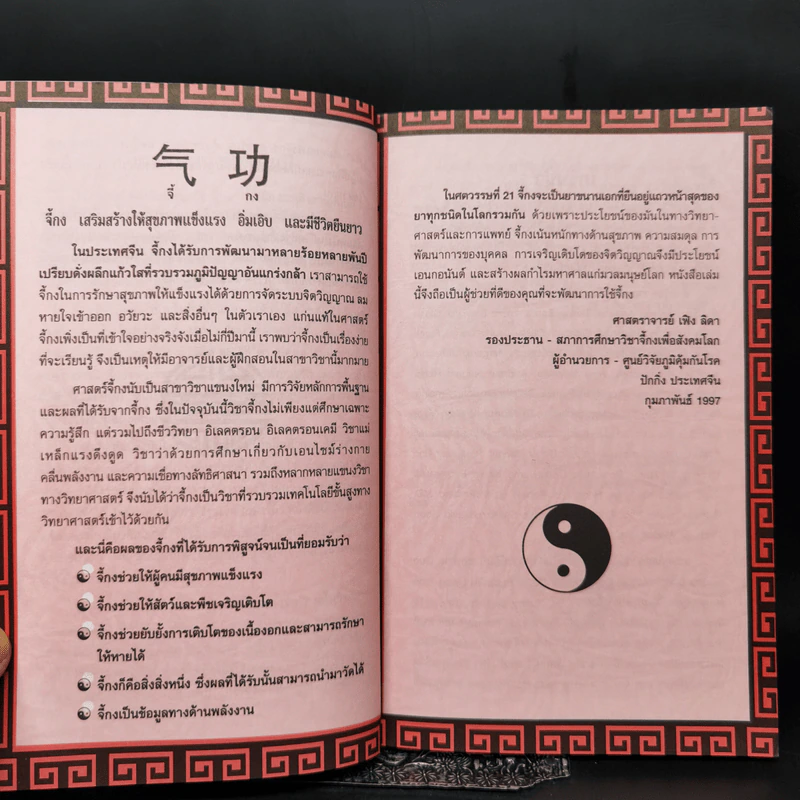 气 功
จี้ กง
จี้กง เสริมสร้างให้สุขภาพแข็งแรง อิ่มเอิบ และมีชีวิตยืนยาว
ในประเทศจีน จี้กงได้รับการพัฒนามาหลายร้อยหลายพันปี
เปรียบดั่งผลึกแก้วใสที่รวบรวมภูมิปัญญาอันแกร่งกล้า เราสามารถใช้
จี้กงในการรักษาสุขภาพให้แข็งแรงได้ด้วยการจัดระบบจิตวิญญาณ ลม
หายใจเข้าออก อวัยวะ และสิ่งอื่นๆ ในตัวเราเอง แก่นแท้ในศาสตร์
จี้กงเพิ่งเป็นที่เข้าใจอย่างจริงจังเมื่อไม่กี่ปีมานี้ เราพบว่าจี้กงเป็นเรื่องง่าย
ที่จะเรียนรู้ จึงเป็นเหตุให้มีอาจารย์และผู้ฝึกสอนในสาขาวิชานี้มากมาย
ศาสตร์จี้กงนับเป็นสาขาวิชาแขนงใหม่ มีการวิจัยหลักการพื้นฐาน
และผลที่ได้รับจากจี้กง ซึ่งในปัจจุบันนี้วิชาจี้กงไม่เพียงแต่ศึกษาเฉพาะ
ความรู้สึก แต่รวมไปถึงชีววิทยา อิเลคตรอน อิเลคตรอนเคมี วิชาแม่
เหล็กแรงดึงดูด วิชาว่าด้วยการศึกษาเกี่ยวกับเอนไซม์ร่างกาย
คลื่นพลังงาน และความเชื่อทางลัทธิศาสนา รวมถึงหลากหลายแขนงวิชา
ทางวิทยาศาสตร์ จึงนับได้ว่าจี้กงเป็นวิชาที่รวบรวมเทคโนโลยีชั้นสูงทาง
วิทยาศาสตร์เข้าไว้ด้วยกัน
และนี่คือผลของจี้กงที่ได้รับการพิสูจน์จนเป็นที่ยอมรับว่า
จี้กงช่วยให้ผู้คนมีสุขภาพแข็งแรง
จี้กงช่วยให้สัตว์และพืชเจริญเติบโต
จี้กงช่วยยับยั้งการเติบโตของเนื้องอกและสามารถรักษา
ให้หายได้
จี้กงก็คือสิ่งสิ่งหนึ่ง ซึ่งผลที่ได้รับนั้นสามารถนำมาวัดได้
จี้กงเป็นข้อมูลทางด้านพลังงาน
ในศตวรรษที่ 21 จี้กงจะเป็นยาขนานเอกที่ยืนอยู่แถวหน้าสุดของ
ยาทุกชนิดในโลกรวมกัน ด้วยเพราะประโยชน์ของมันในทางวิทยา-
ศาสตร์และการแพทย์ จี้กงเน้นหนักทางด้านสุขภาพ ความสมดุล การ
พัฒนาการของบุคคล การเจริญเติบโตของจิตวิญญาณจึงมีประโยชน์
เอนกอนันต์ และสร้างผลกำไรมหาศาลแก่มวลมนุษย์โลก หนังสือเล่ม
นี้จึงถือเป็นผู้ช่วยที่ดีของคุณที่จะพัฒนาการใช้จี้กง
ศาสตราจารย์ เฟิง ลิดา
รองประธาน - สภาการศึกษาวิชาจี้กงเพื่อสังคมโลก
ผู้อำนวยการ - ศูนย์วิจัยภูมิคุ้มกันโรค
ปักกิ่ง ประเทศจีน
กุมภาพันธ์ 1997